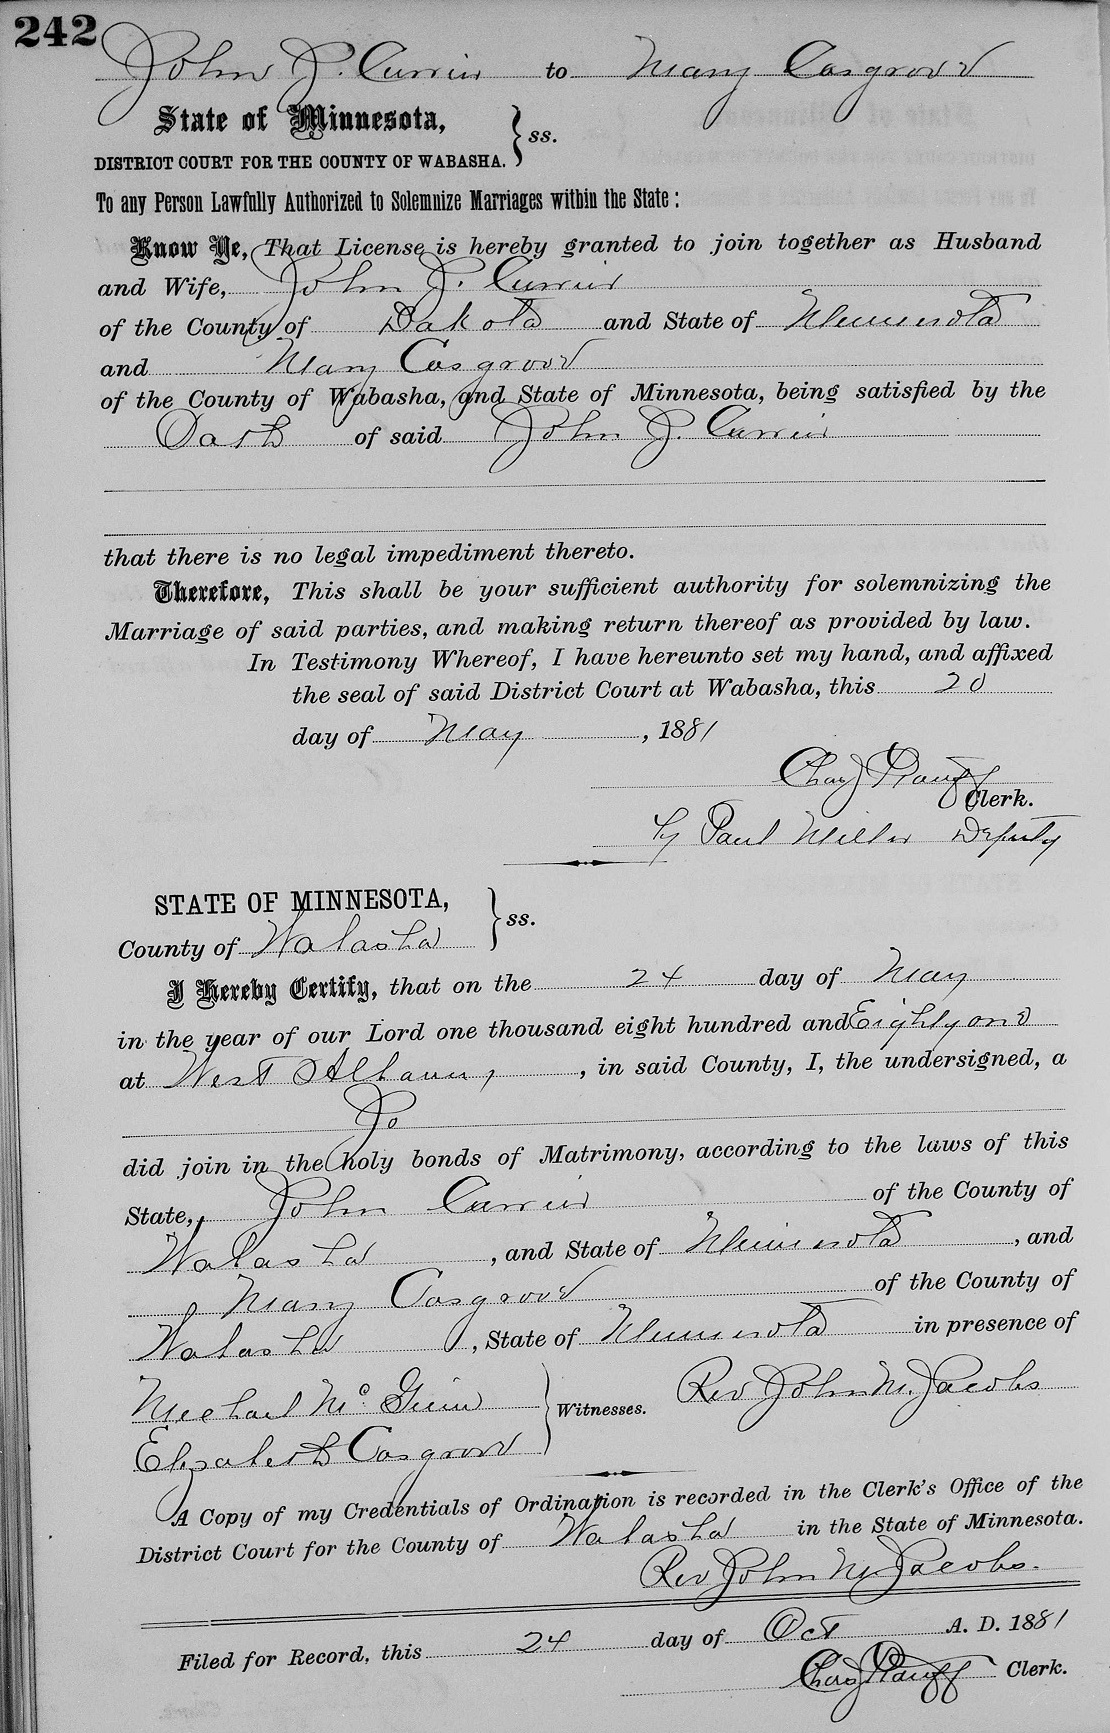 242
John J. Currier to Mary Cosgrove
State of Minnesota,
DISTRICT COURT FOR THE COUNTY OF WABASHA. } ss.
To any Person Lawfully Authorized to Solemnize Marriages within the State:
Know Ye, That License is hereby granted to join together as Husband
and Wife, John J. Currier
of the County of Dakota and State of Minnesota
and Mary Cosgrove
of the County of Wabasha, and State of Minnesota, being satisfied by the
Oath of said John J. Currier
that there is no legal impediment thereto.
Therefore, This shall be your sufficient authority for solemnizing the
Marriage of said parties, and making return thereof as provided by law.
In Testimony Whereof, I have hereunto set my hand, and affixed
the seal of said District Court at Wabasha, this 20
day of May, 1881
Chas J
Clerk.
by Paul Miller Deputy
STATE OF MINNESOTA,
County of Wabasha } ss.
I Hereby Certify, that on the 24 day of May
in the year of our Lord one thousand eight hundred and Eighty one
at West Albany, in said County, I, the undersigned, a
did join in the holy bonds of Matrimony, according to the laws of this
State, John Currier of the County of
Wabasha, and State of Minnesota, and
Mary Cosgrove of the County of
Wabasha, State of Minnesota in presence of
Michael Mc Ginn
Elizabeth Cosgrove } Witnesses. Rev John M. Jacobs
A Copy of my Credentials of Ordination is recorded in the Clerk's Office of the
District Court for the County of Wabasha in the State of Minnesota.
Rev John M Jacobs.
Filed for Record, this 24 day of Oct A. D. 1881
Chas J Clerk.